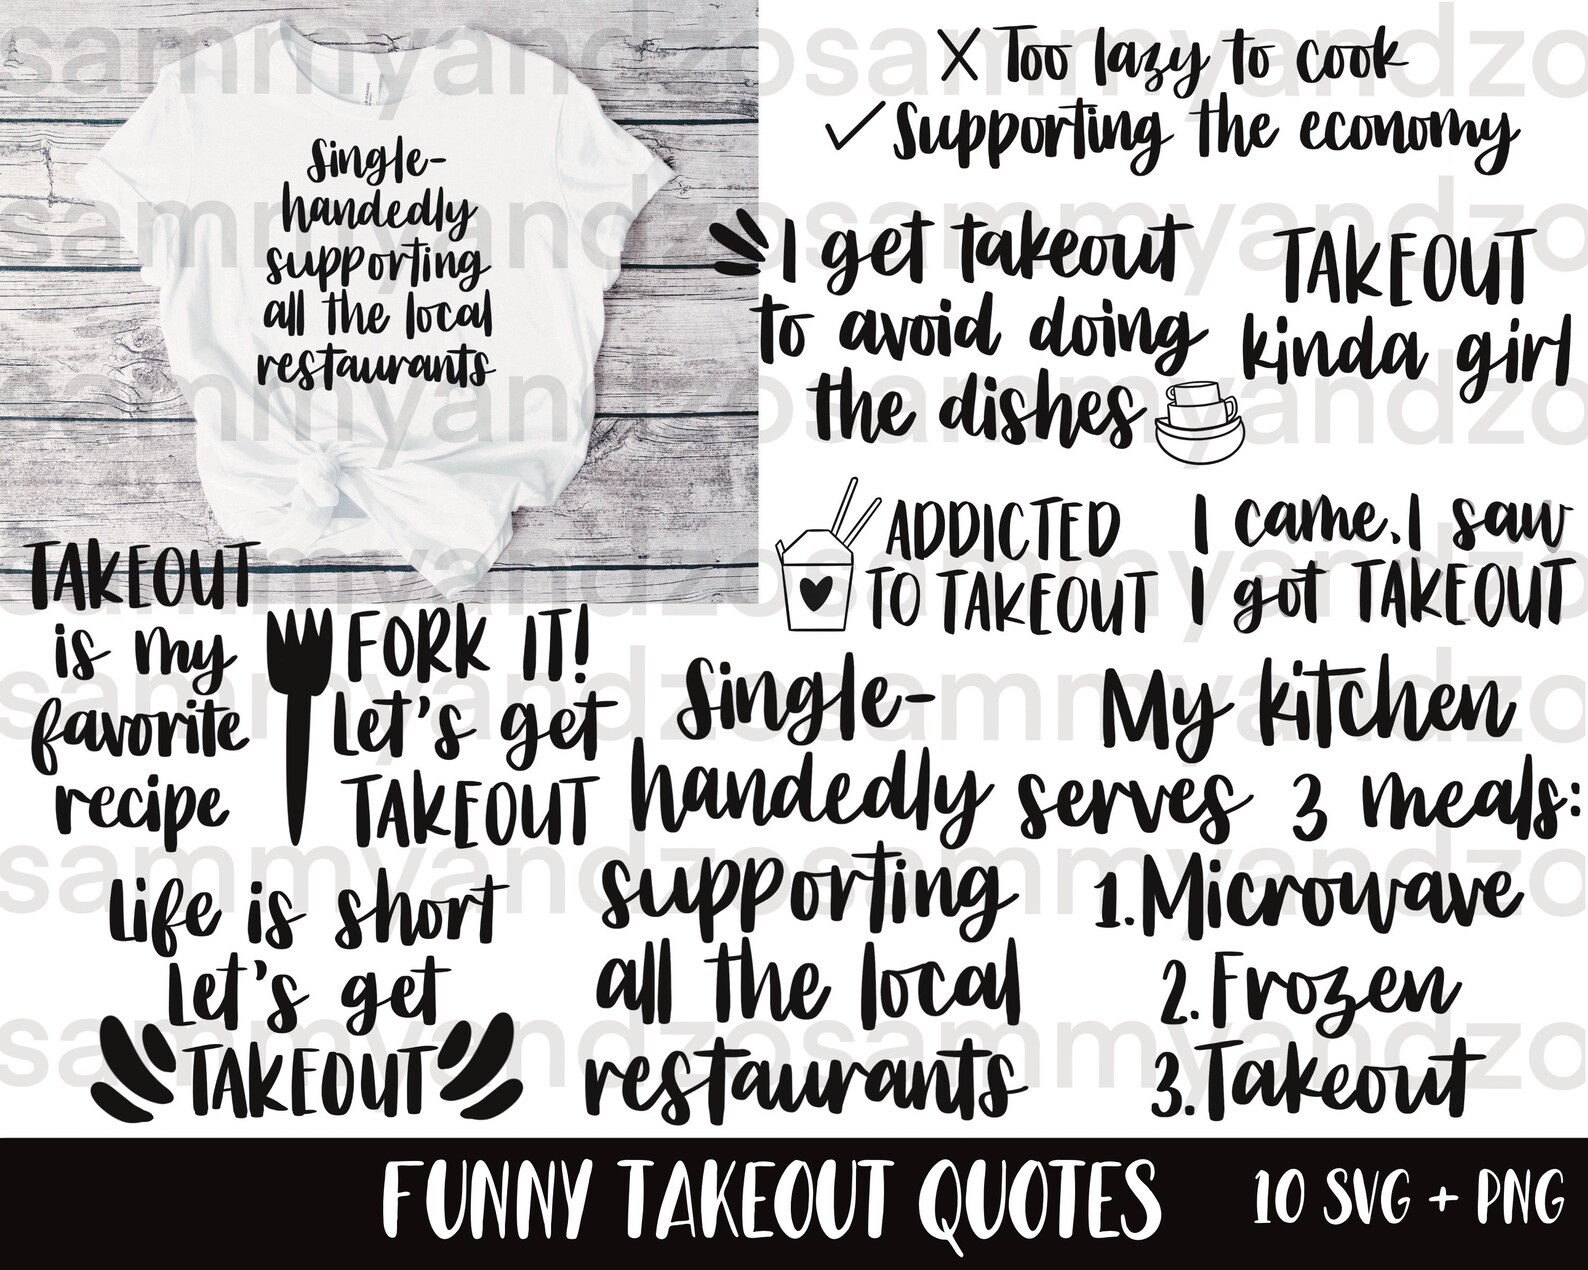 Single-
handedly
supporting
all the local
restaurants
X Too lazy to cook
✓ Supporting the economy
I get takeout
to avoid doing
the dishes
TAKEOUT
kinda girl
ADDICTED
TO TAKEOUT
I came, I saw
I got TAKEOUT
TAKEOUT
is my
favorite
recipe
FORK IT!
Let's get
TAKEOUT
Single-
handedly
supporting
all the local
restaurants
My kitchen
serves 3 meals:
1. Microwave
2. Frozen
3. Takeout
Life is short
Let's get
TAKEOUT
FUNNY TAKEOUT QUOTES
10 SVG + PNG
sammyandzo